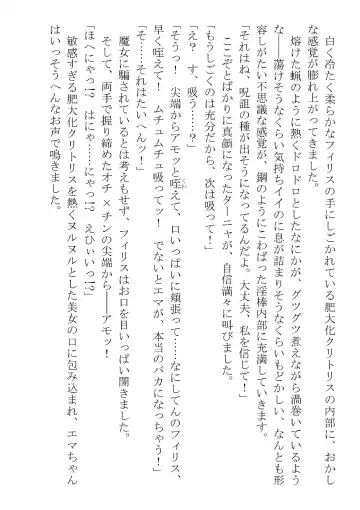 白く冷たく柔らかなフィリスの手にしごかれている肥大化クリトリスの内部に、おかし
な感覚が膨れ上がってきました。
熔けた蝋のように熱くドロドロとしたなにかが、グツグツ煮えながら渦巻いているよう
な――蕩けそうなくらい気持ちイイのに息が詰まりそうなくらいもどかしい、なんとも形
容しがたい不思議な感覚が、鋼のようにこわばった淫棒内部に充満していきます。
「それはね、呪詛の種が出そうになってるんだよ。大丈夫、私を信じて！」
ここぞとばかりに真顔になったターニャが、自信満々に叫びました。
「もうしごくのは充分だから、次は吸って！」
「え？　す、吸う……？」
「そうっ！　尖端からアモッと咥えて、口いっぱいに頬張って……なにしてんのフィリス、
早く咥えて！　ムチュムチュ吸ってッ！　でないとエマが、本当のバカになっちゃう！」
「そ……それはたいへんッ！」
魔女に騙されているとは考えもせず、フィリスはお口を目いっぱい開きました。
そして、両手で握り締めたオチ×チンの尖端から――アモッ！
「ほへにゃっ!?　はにゃ……にゃっ!?　えひぃいっ!?」
敏感すぎる肥大化クリトリスを熱くヌルヌルとした美女の口に包み込まれ、エマちゃん
はいっそうへんなお声で鳴きました。